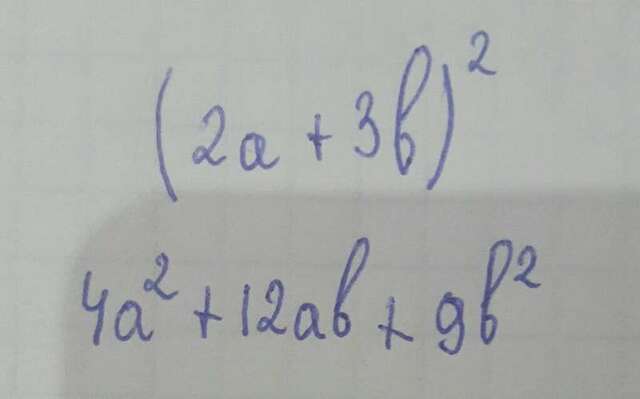 (2a + 3b)²
4a² + 12ab + 9b²